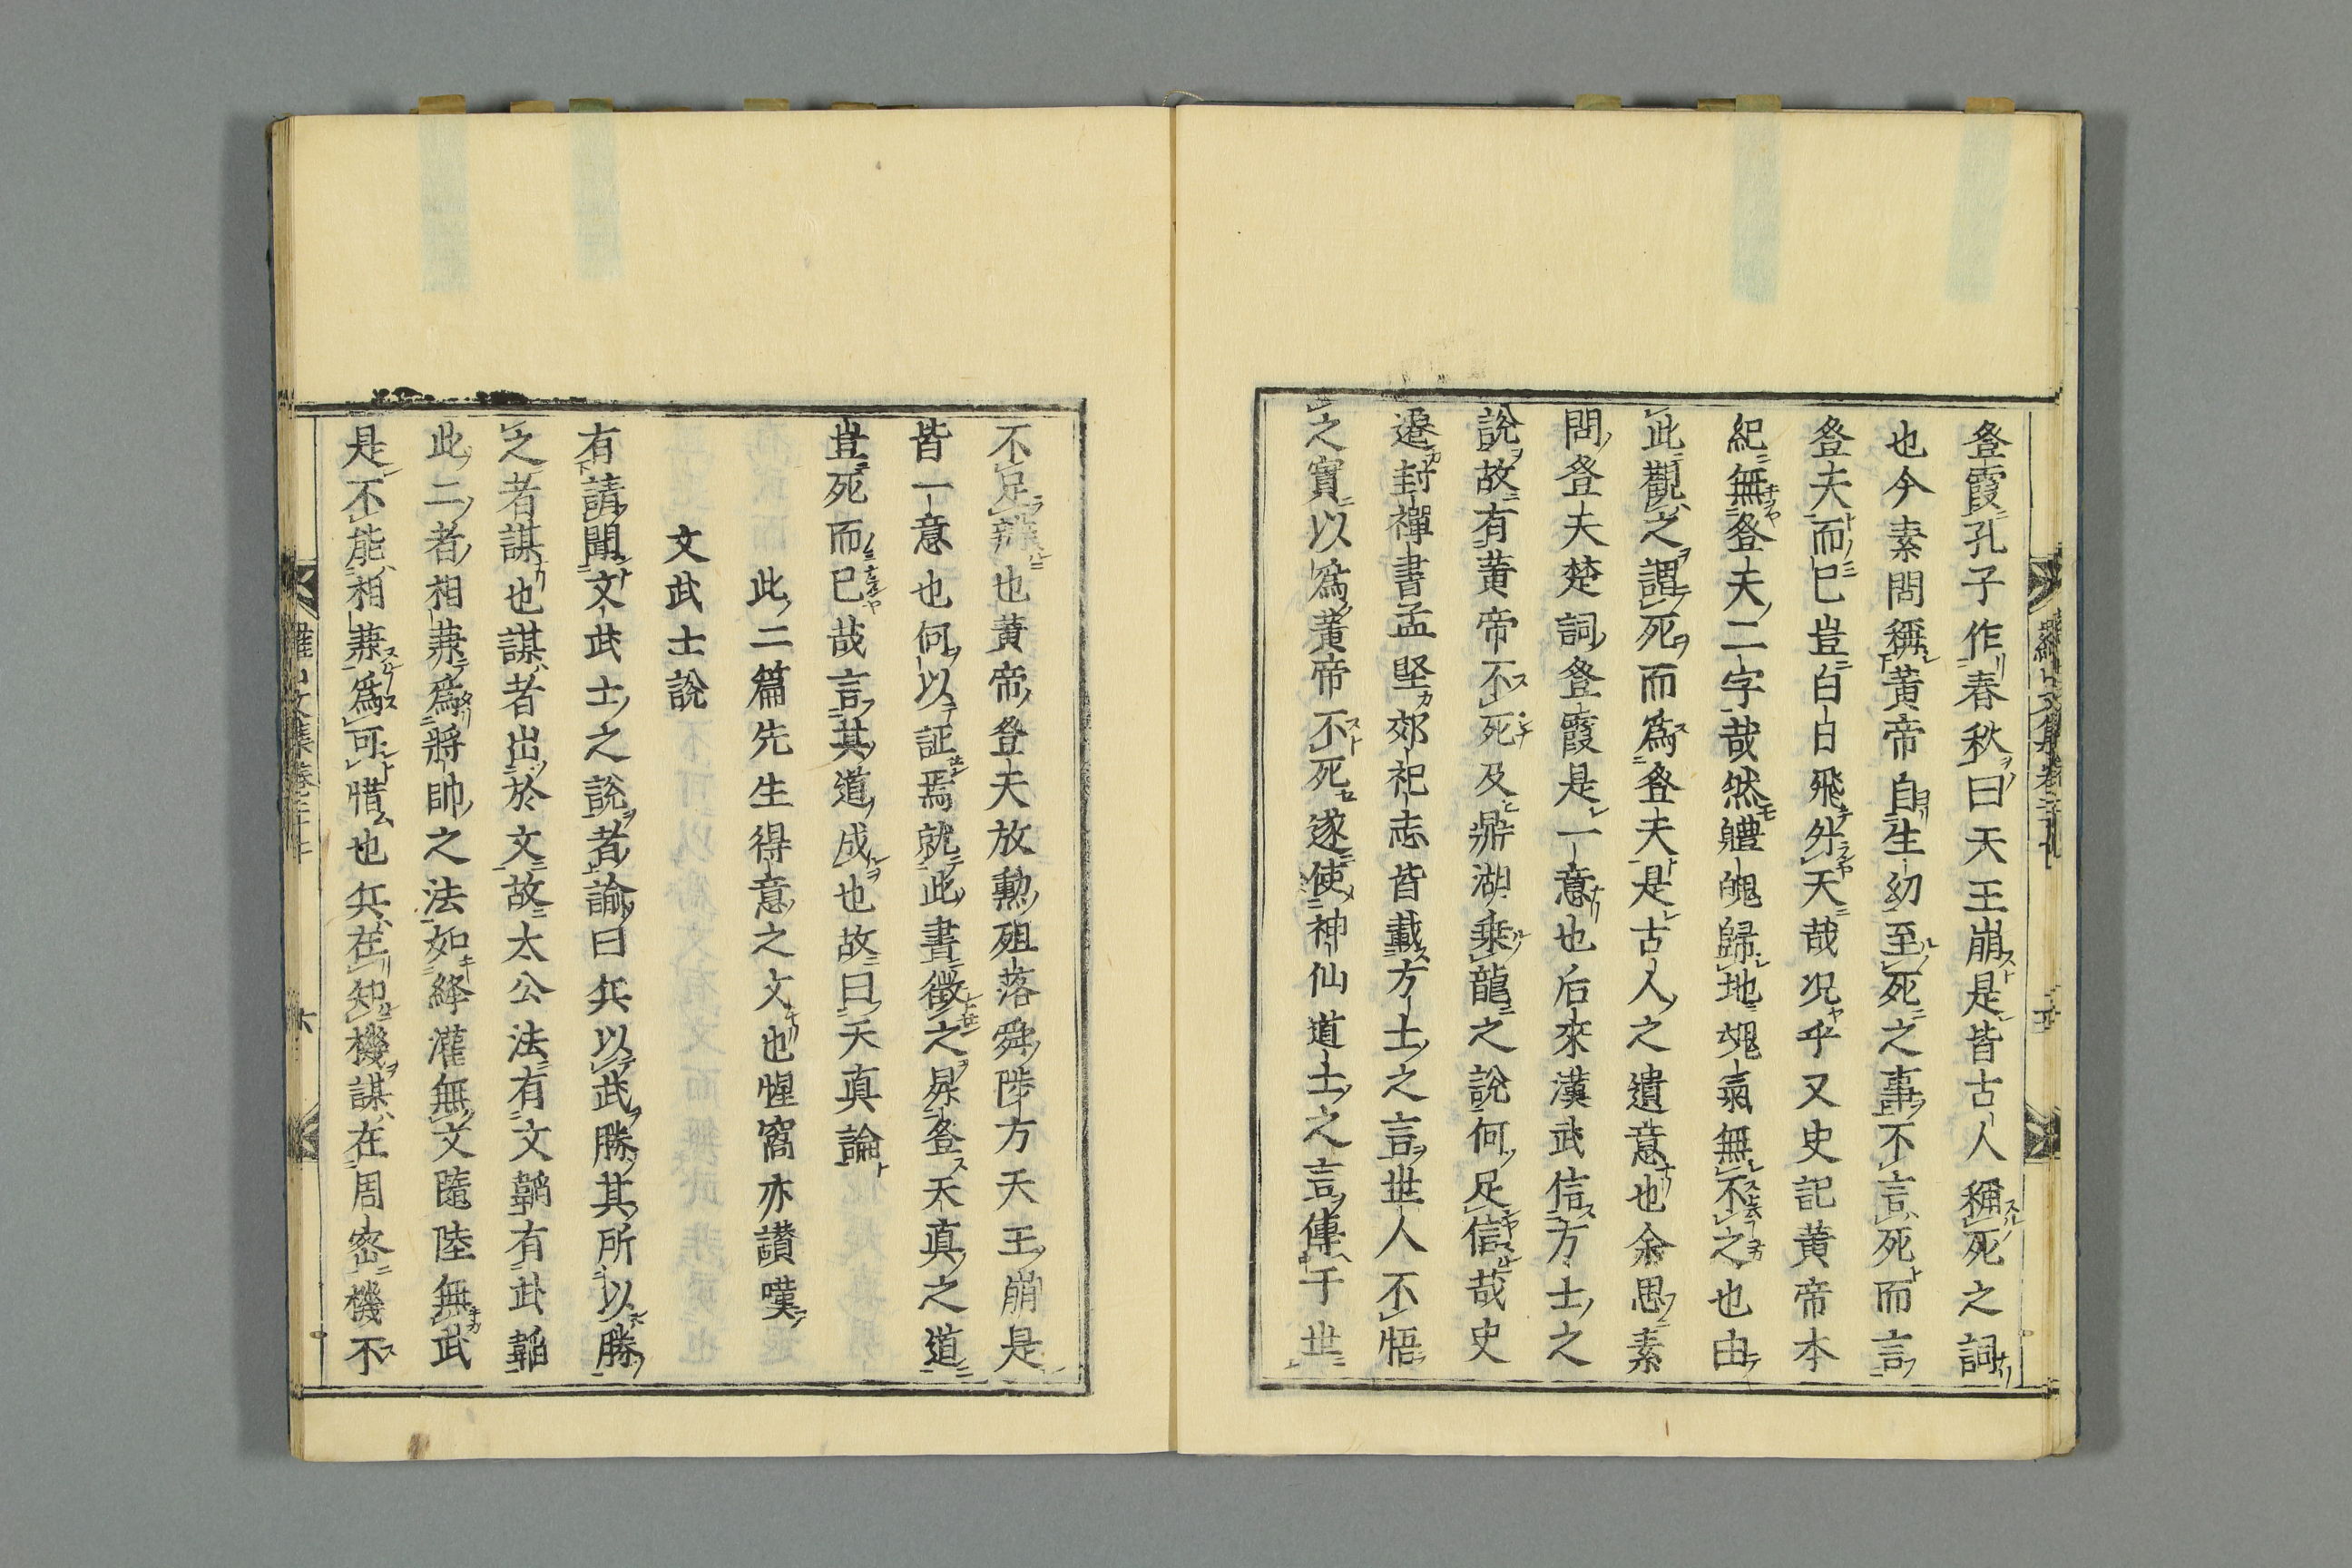 登霞孔子作春秋曰天王崩是皆古人稱死之詞
也今素問稱黄帝自生幼至死之事不言死而言
登天而已豈白日飛外天哉况乎又史記黄帝本
紀無登天二字哉然軆魄歸地魂氣無不之也由
此觀之謂死而為登天是古人之遺意也余思素
問登天楚詞登霞是一意也后來漢武信方士之
說故有黄帝不死及鼎湖乘龍之說何足信哉史
遷封禪書孟堅郊祀志皆載方士之言世人不悟
之實以為黄帝不死遂使神仙道士之言傳于世
不足辨也黄帝登天放勲殂落舜陟方天王崩是
皆一意也何以証焉就此書徵之昇登天真之道
豈死而已哉言其道成也故曰天真論
此二篇先生得意之文也惺窩亦讃嘆
文武士說
有請聞文武士之說者諭曰兵以武勝其所以勝
之者謀也謀者出於文故太公法有文韜有武韜
此二者相兼為將帥之法如絳灌無文隨陸無武
是不能相兼為可惜也兵在知機謀在周密機不
羅山文集卷二十七
六